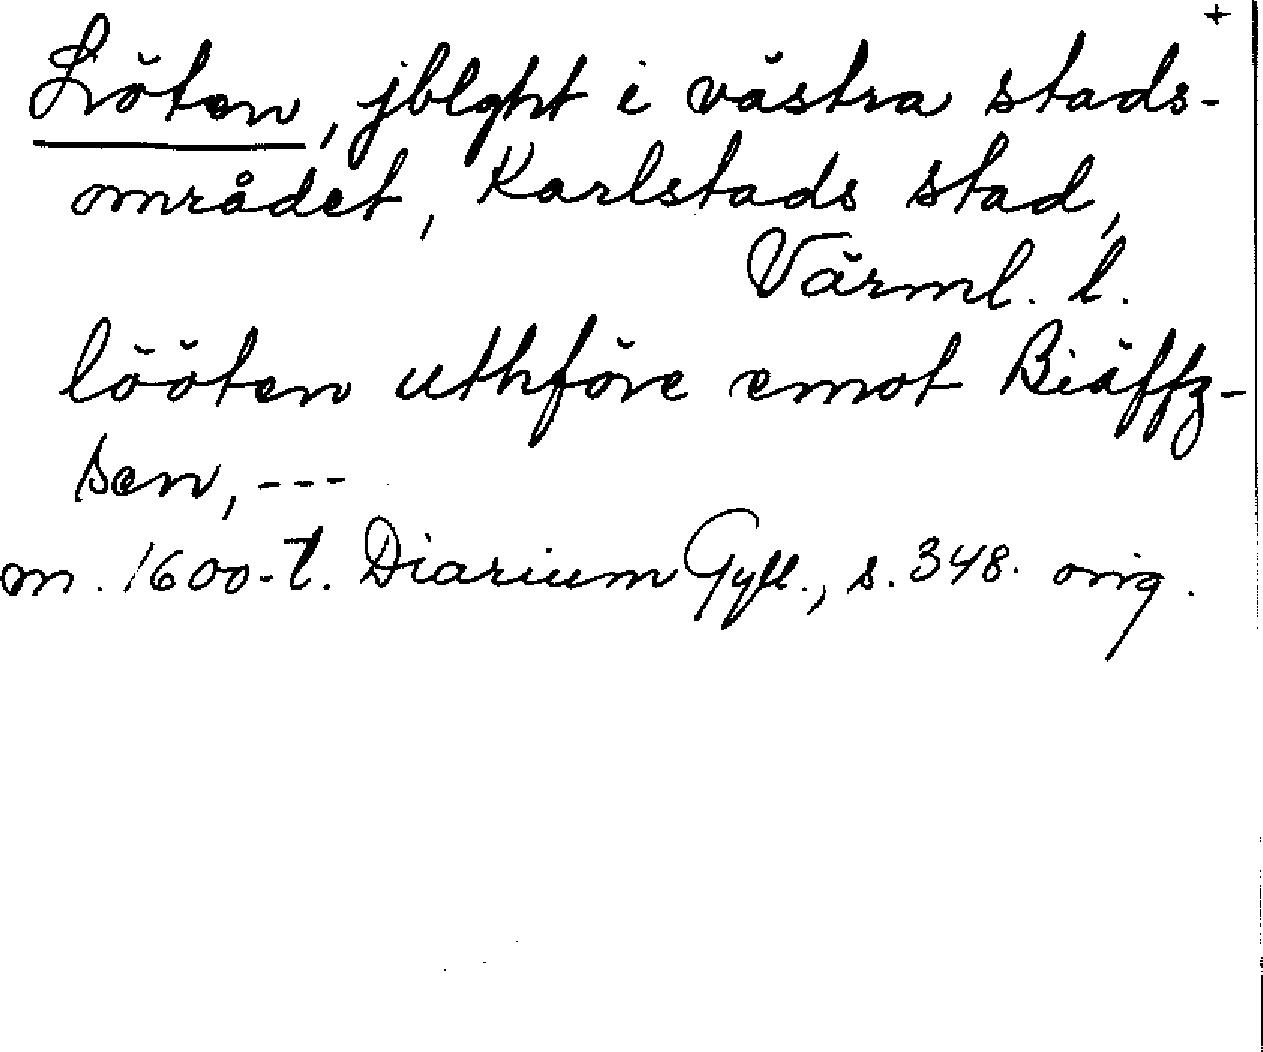 +
Löten, jblght i västra stads-
området, Karlstads stad,
Värml. l.
lööten uthföre emot Biäffz-
sen, ---
m. 1600-t. Diarium Gyll., s. 348. orig.